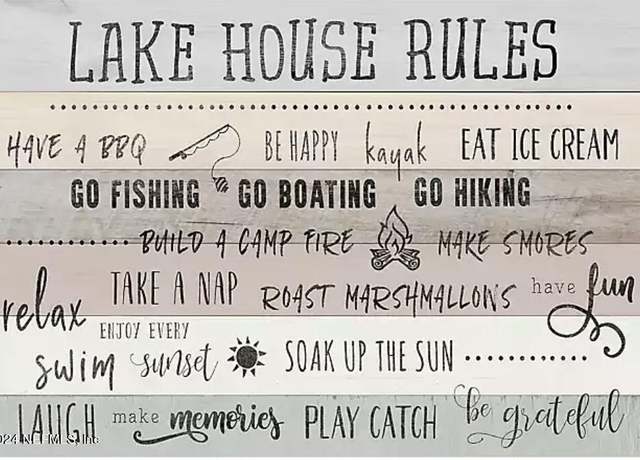 LAKE HOUSE RULES
HAVE A BBQ BE HAPPY kayak EAT ICE CREAM
GO FISHING GO BOATING GO HIKING
BUILD A CAMP FIRE MAKE S'MORES
relax TAKE A NAP ROAST MARSHMALLOWS have fun
ENJOY EVERY
swim sunset SOAK UP THE SUN
LAUGH make memories PLAY CATCH be grateful